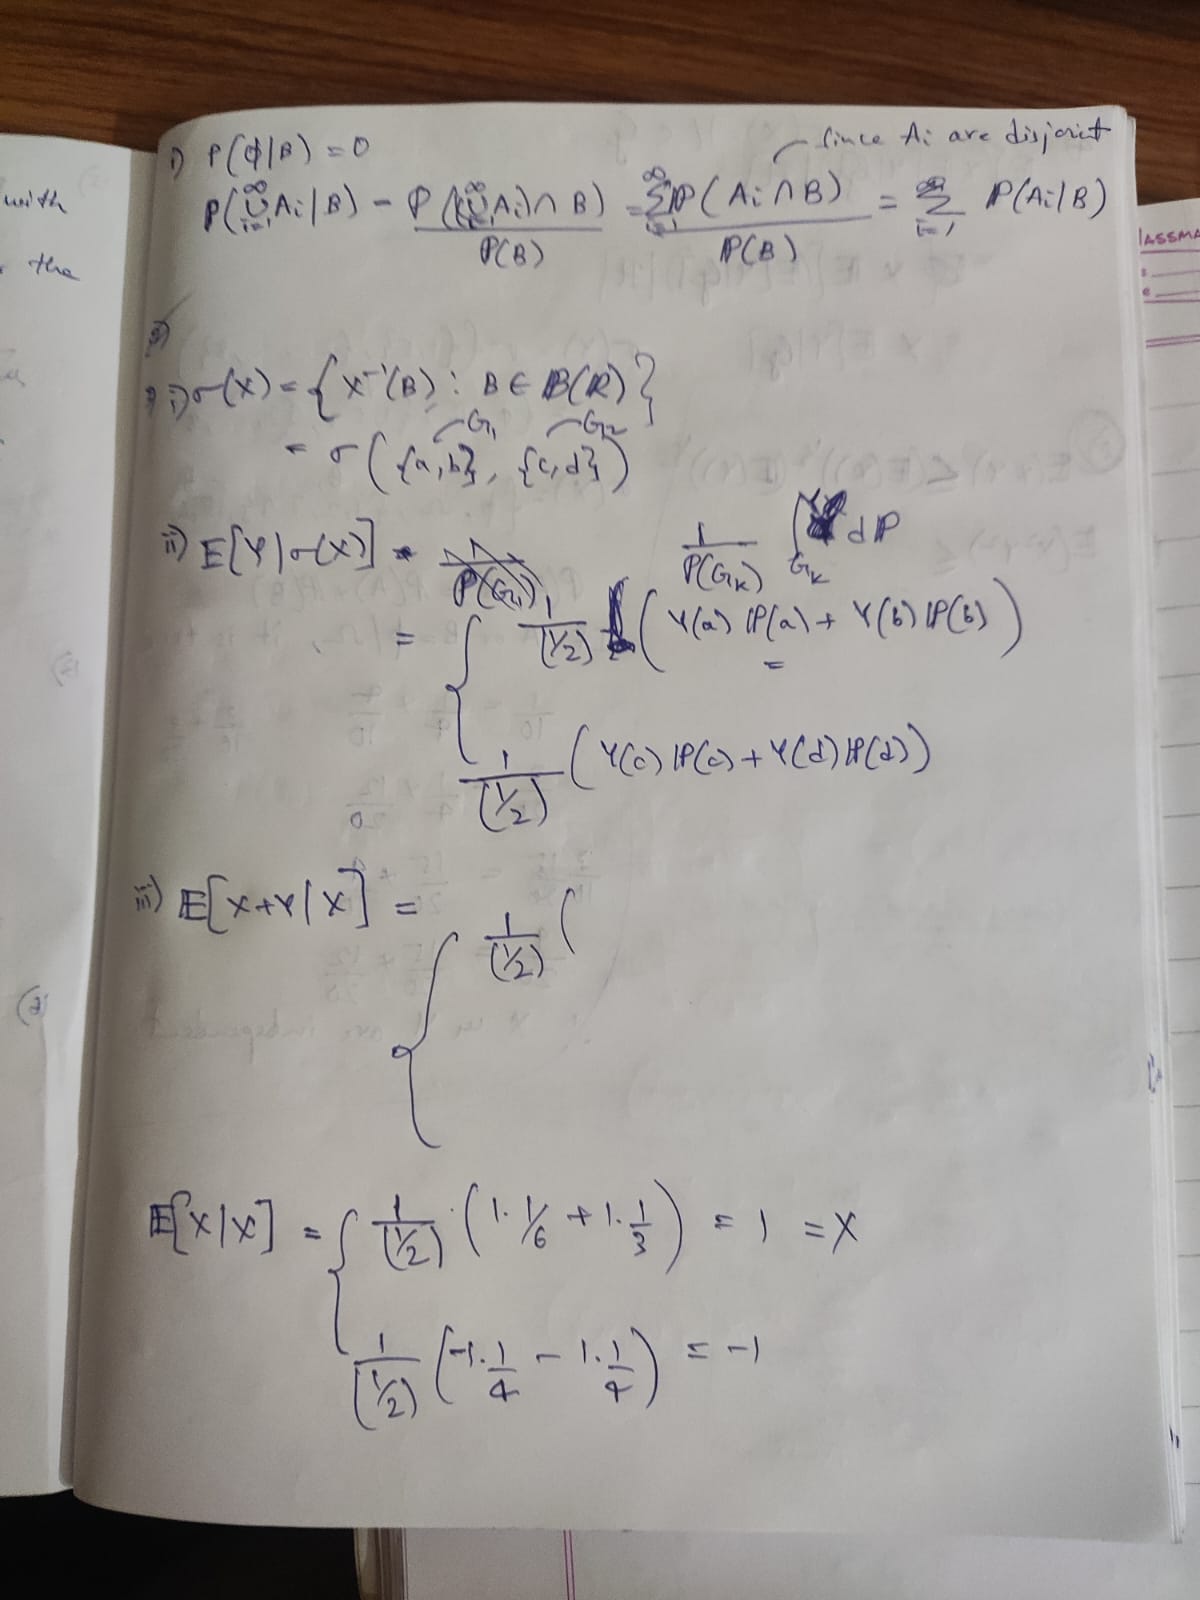 with
the
1) P(ϕ|B) = 0
since Ai are disjoint
P(∪_{i=1}^∞ Ai | B) = P((∪_{i=1}^∞ Ai) ∩ B) / P(B) = Σ_{i=1}^∞ P(Ai ∩ B) / P(B) = Σ_{i=1}^∞ P(Ai | B)
i) σ(X) = { X⁻¹(B) : B ∈ B(R) }
G1 G2
= σ( {a, b}, {c, d} )
ii) E[Y | σ(X)] = 1/P(Gk) ∫_{Gk} Y dP
= { 1/(1/2) ( Y(a) P(a) + Y(b) P(b) )
=
1/(1/2) ( Y(c) P(c) + Y(d) P(d) )
iii) E[X+Y | X] = { 1/(1/2) (
E[X | X] = { 1/(1/2) · ( 1 · 1/6 + 1 · 1/3 ) = 1 = X
1/(1/2) ( -1 · 1/4 - 1 · 1/4 ) = -1